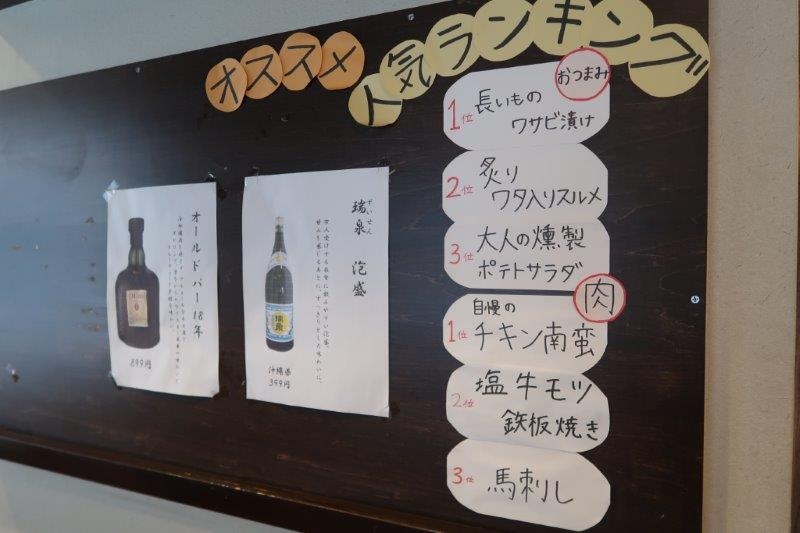 オススメ
人気ランキング
おつまみ
1位 長いもの
ワサビ漬け
2位 炙り
ワタ入りスルメ
3位 大人の燻製
ポテトサラダ
肉
1位 自慢の
チキン南蛮
2位 塩牛モツ
鉄板焼き
3位 馬刺し
ずいせん
瑞泉 泡盛
瑞泉
沖縄県
399円
オールドパー18年
899円